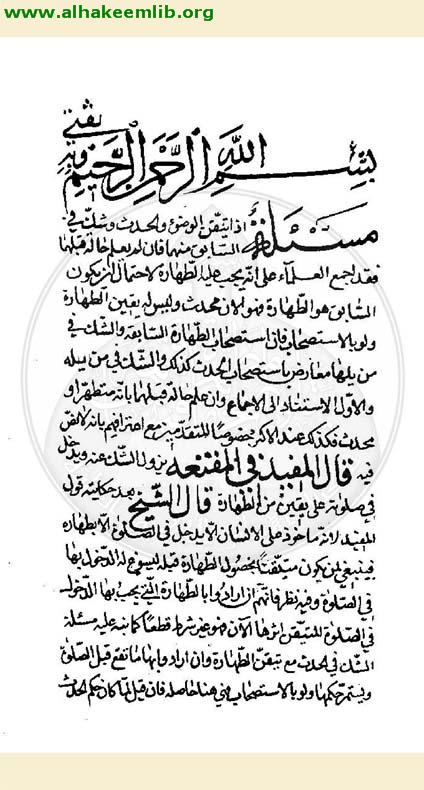 www.alhakeemlib.org
بسم الله الرحمن الرحيم وبه ثقتي
مسئلة اذا تيقن الوضوء والحدث وشك في
السابق منهما فان لم يعلم حاله قبلهما
فقد اجمع العلماء على انه يجب عليه الطهارة لاحتمال ان يكون
السابق هو الطهارة فهو الان محدث وليس له يقين الطهارة
ولو بالاستصحاب فان استصحاب الطهارة السابقة والشك في
مزيلها معارض باستصحاب الحدث كذلك والشك في مزيله
والاولى الاستناد الى الاجماع وان علم حاله قبلهما بانه متطهر او
محدث فكذلك عند الاكثر خصوصا المتقدمين مع اعترافهم بانه لا نص
فيه قال المفيد في المقنعه ليزول الشك عنه ويدخل
في صلوته على يقين من الطهارة قال الشيخ بعد حكايته قول
المفيد لانه ماخوذ على الانسان الا يدخل في الصلوة الا بطهاره
فينبغي ان يكون متيقنا بحصول الطهارة قبله ليسوغ له الدخول بها
في الصلوة وفيه نظر فانهم ان ارادوا بالطهارة التي يجب بها الدخول
في الصلوة المتيقن اثرها الآن فهو غير شرط قطعا كما نبه عليه مسئلة
الشك في الحدث مع تيقن الطهارة وان ارادوا بها ما تقع قبل الصلوة
ويستمر حكمها ولو بالاستصحاب فهي هنا حاصله فان قيل لما كان حكم الحدث